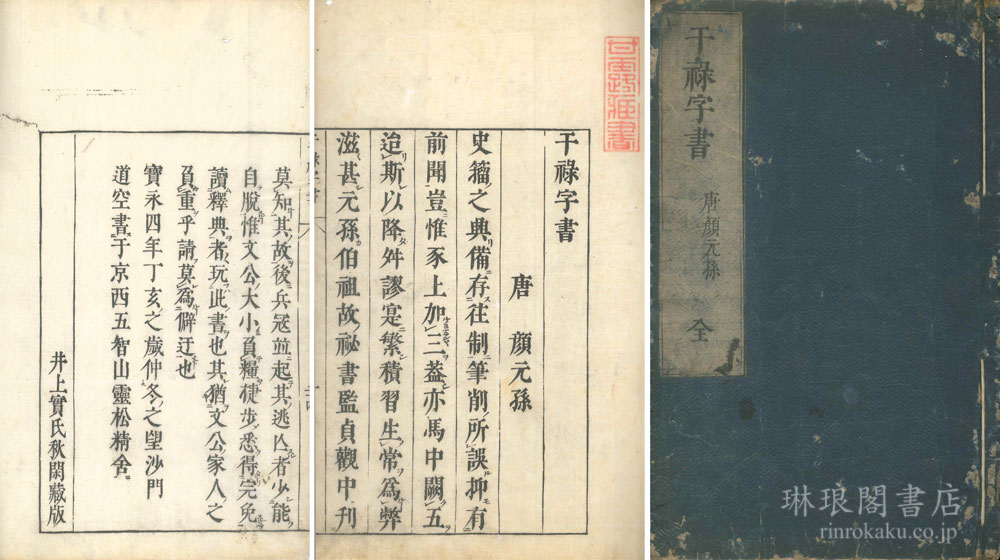 干祿字書
唐顔元孫
全
干祿字書
唐 顔元孫
史籀之典備存往制筆削所誤抑有
前聞豈惟豕上加三蓋亦馬中闕五
迨斯以降舛謬寔繁積習生常爲弊
滋甚元孫伯祖故祕書監貞觀中刊
莫知其故後兵冦並起其逃亾者少能
自脫惟文公大小負糧徤步悉得完免
讀釋典者玩此書也其猶文公家人之
負重乎請莫爲僻迂也
寶永四年丁亥之歲仲冬之望沙門
道空書于京西五智山靈松精舍
井上實氏秋閑藏版
琳琅閣書店
rinrokaku.co.jp